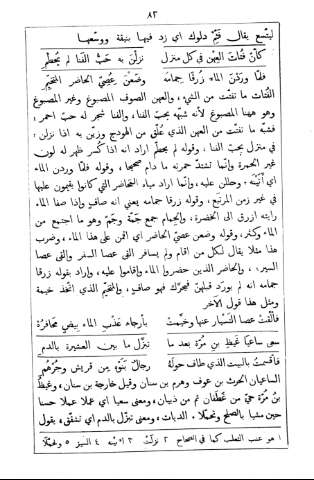 ٨٢
ليتسع يقال فئم دلوك اي زد فيها بنيقة ووسعها
كأن فتات العهن في كل منزل نزلن به حب الفنا لم يحطم
فلما وردن الماء زرقا جمامه وضعن عصي الحاضر المتخيم
الفتات ما تفتت من الشيء، والعهن الصوف المصبوغ وغير المصبوغ
وهو ههنا المصبوغ لأنه شبهه بحب الفنا، والفنا شجر له حب احمر،
فشبه ما تفتت من العهن الذي علق من الهودج وزين به اذا نزلن
في منزل بحب الفنا، وقوله لم يحطم اراد انه اذا كسر ظهر له لون
غير الحمرة وانما تشتد حمرته ما دام صحيحا، وقوله فلما وردن الماء
اي أتينه وحللن عليه، وانما اراد مياه المحاضر التي كانوا يقيمون عليها
في غير زمن المرتبع، وقوله زرقا جمامه يعني انه صاف واذا صفا الماء
رايته ازرق الى الخضرة، والجمام جمع جمة وجم وهو ما اجتمع من
الماء وكثر، وقوله وضعن عصي الحاضر اي اقمن على هذا الماء، وضرب
هذا مثلا يقال لكل من اقام ولم يسافر القى عصا السفر والقى عصا
السير، والحاضر الذين حضروا الماء واقاموا عليه، واراد بقوله زرقا
جمامه انه لم يورد قبلهن فيحرك فهو صاف، والمتخيم الذي اتخذ خيمة
ومثل هذا قول الآخر
فألقت عصا التسيار عنها وخيمت بأرجاء عذب الماء بيض محافره
سعى ساعيا غيظ بن مرة بعد ما تبزل ما بين العشيرة بالدم
فأقسمت بالبيت الذي طاف حوله رجال بنوه من قريش وجرهم
الساعيان الحرث بن عوف وهرم بن سنان وقيل خارجة بن سنان، وغيظ
بن مرة حي من غطفان ثم من ذبيان، ومعنى سعيا اي عملا عملا حسنا
حين مشيا بالصلح وتحملا الديات، ومعنى تبزل بالدم اي تشقق، يقول
١ هو عنب الثعلب كما في الصحاح ٢ نزلت ٤ السير ٥ وتحملا